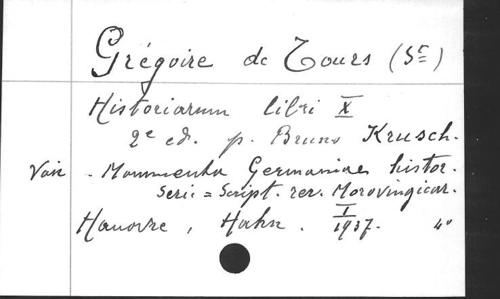 Grégoire de Tours (St)
Historiarum libri X
2e ed. p. Bruno Krusch.
Voir - Monumenta Germaniae histor.
Serie = Script. rer. Merovingicar.
I
Hanovre, Hahn. 1937. 4°